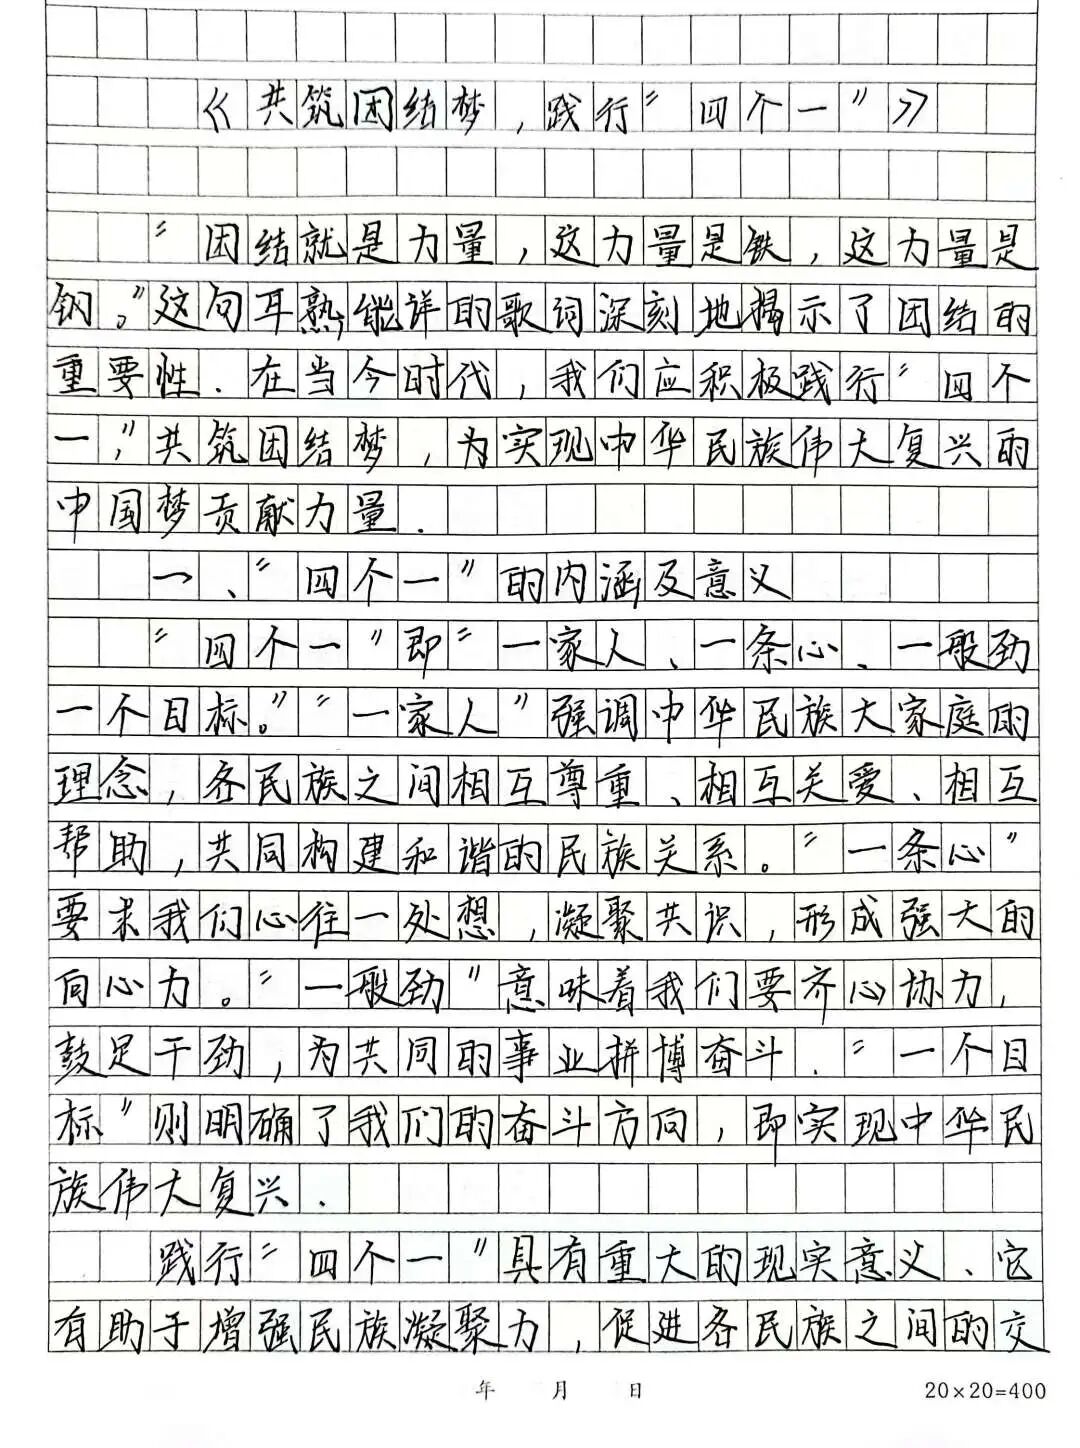 《共筑团结梦，践行“四个一”》
“团结就是力量，这力量是铁，这力量是
钢。”这句耳熟能详的歌词深刻地揭示了团结的
重要性．在当今时代，我们应积极践行“四个
一”，共筑团结梦，为实现中华民族伟大复兴的
中国梦贡献力量．
一、“四个一”的内涵及意义
“四个一”即“一家人、一条心、一般劲
一个目标。”“一家人”强调中华民族大家庭的
理念，各民族之间相互尊重、相互关爱、相互
帮助，共同构建和谐的民族关系。“一条心”
要求我们心往一处想，凝聚共识，形成强大的
向心力。“一般劲”意味着我们要齐心协力，
鼓足干劲，为共同的事业拼博奋斗．“一个目
标”则明确了我们的奋斗方向，即实现中华民
族伟大复兴．
践行“四个一”具有重大的现实意义、它
有助于增强民族凝聚力，促进各民族之间的交
年 月 日 20×20=400